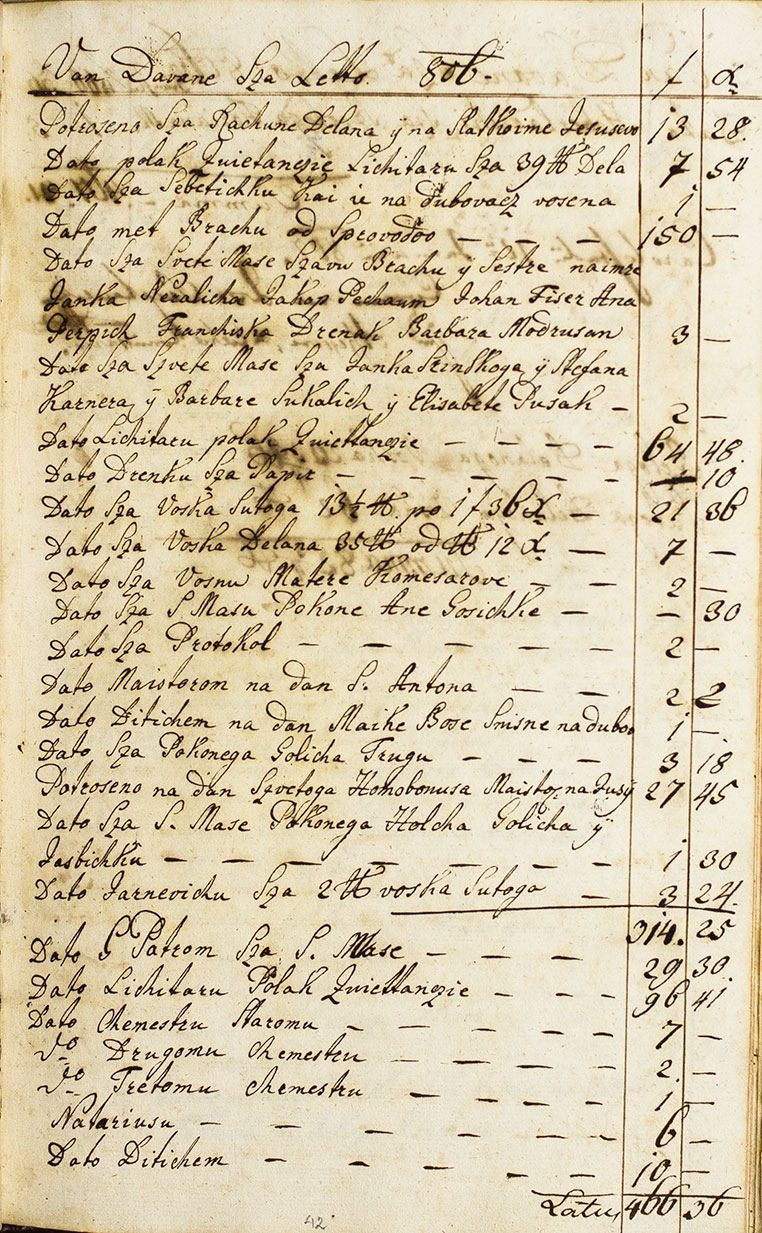 Van Davane Sza Letto. 806. f x
Potroseno Sza Rachune Delana ÿ na Slatkoime Jesusevo 13 28.
Dato polak Quietanczie Lichitaru Sza 39 ℔ Dela 7 54
Dato Sza Sebetichku Kai ie na Dubovacz vosena 1 —
Dato met Brachu od Sprovodov — — — 150 —
Dato Sza Svete Mase Szavu Brachu ÿ Sestre naimre
Janka Neralicha Jakop Pechaum Johan Fiser Ana
Perpich Franchiska Drenak Barbara Modrusan 3 —
Dato Sza Szvete Mase Sza Janka Srinskoga ÿ Stefana
Karnera ÿ Barbare Sukalich ÿ Elisabete Pusak — 2 —
Dato Lichitaru polak Quiettanczie — — — — 64 48.
Dato Drenku Sza Papir — — — — — — — 10
Dato Sza Voska Sutoga 13½ ℔. po 1 f 36 x — 21 36
Dato Sza Voska Delana 35 ℔ od ℔ 12 x. — 7 —
Dato Sza Vosnu Matere Komesarove — — 2 —
Dato Sza S Masu Pokone Ane Gosichke — — 30
Dato Sza Protokol — — — — — 2 —
Dato Maistorom na dan S. Antona — — 2 2
Dato Ditichem na dan Maike Bose Snisne na dubov 1 —.
Dato Sza Pokonega Golicha Trugu — — — — 3 18
Potroseno na dan Szvetoga Homobonusa Maistor na Jusÿ 27 45
Dato Sza S. Mase Pokonega Holcha Golicha ÿ
Jasbichku — — — — — — — — 1 30
Dato Jarnevichu Sza 2 ℔ voska Sutoga — 3 24.
314. 25
Dato G Patrom Sza S. Mase — — — 29 30.
Dato Lichitaru Polak Quiettanczie — — — 96 41
Dato Chemestru Staromu — — — — — 7 —
do Drugomu Chemestru — — — — — 2. —
do Tretomu Chemestru — — — — 1 —
Natariusu — — — — — — — 6 —
Dato Ditichem — — — — — — 10 —
Latus 466 36
42